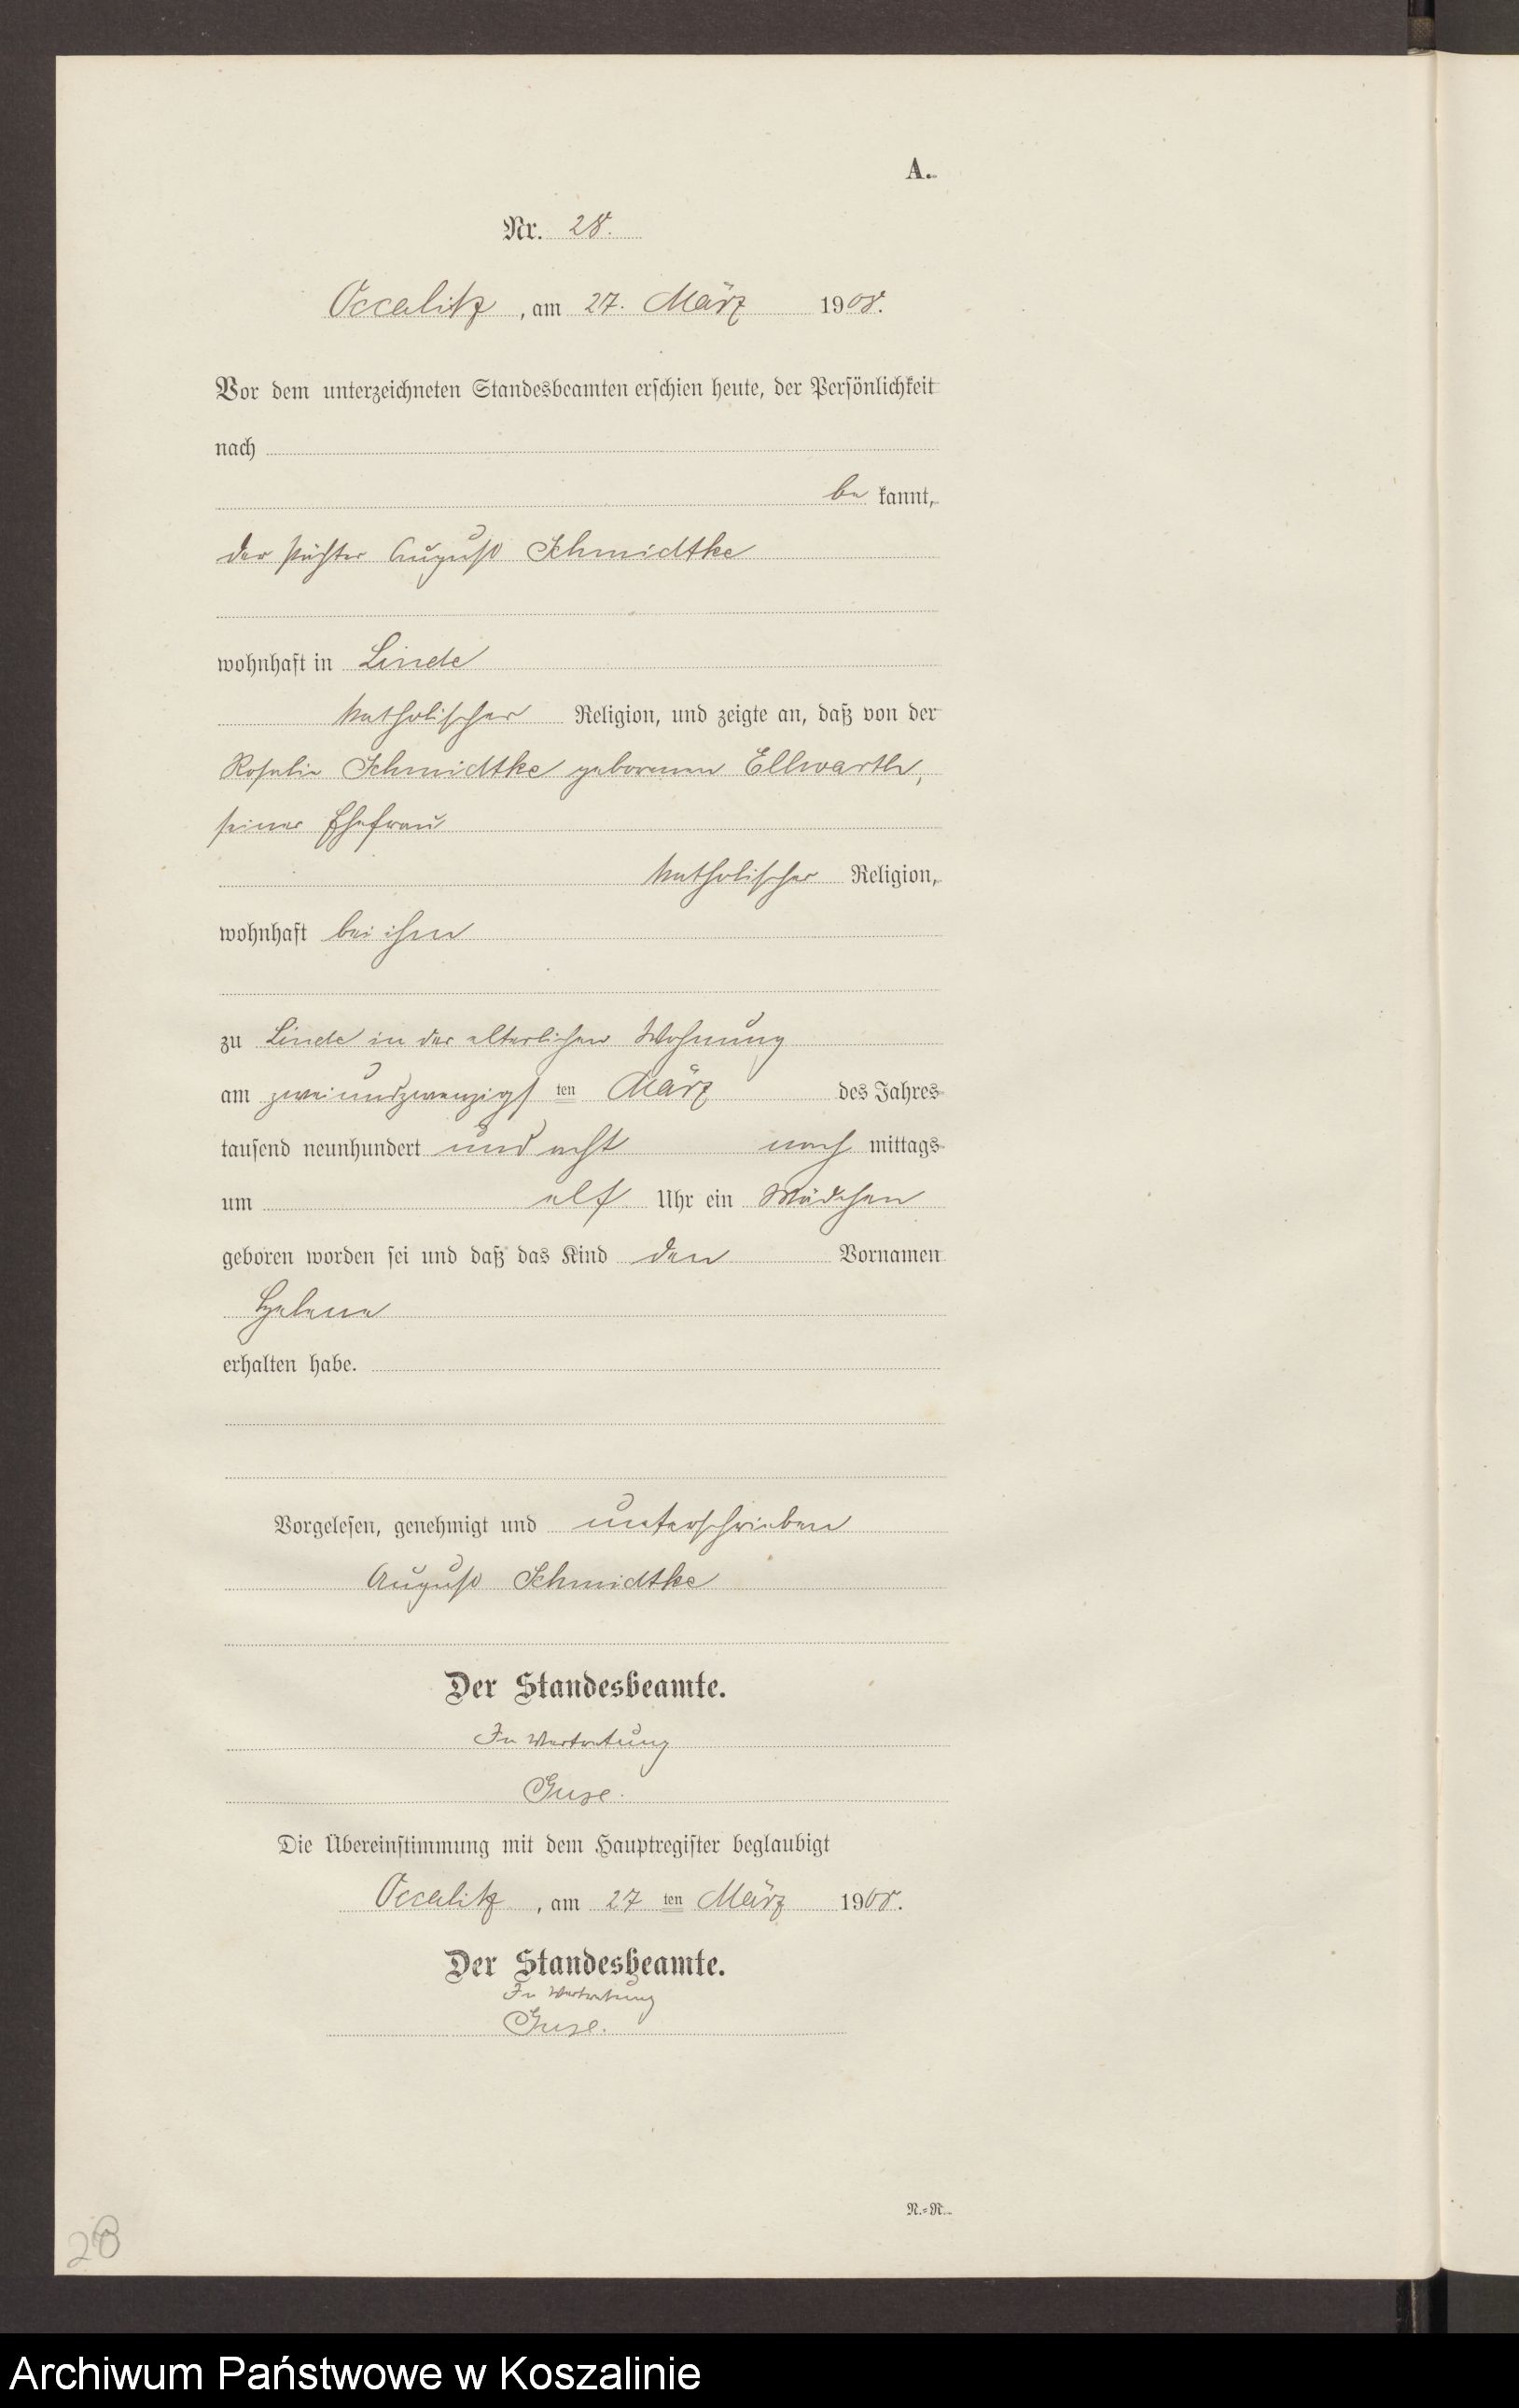 A.
Nr. 28.
Occalitz, am 27. März 1908.
Vor dem unterzeichneten Standesbeamten erschien heute, der Persönlichkeit
nach
be kannt,
der August Schmidtke
wohnhaft in Linde
katholischer Religion, und zeigte an, daß von der
Rosalie Schmidtke geborenen Ellwarth,
seiner Ehefrau
katholischer Religion,
wohnhaft bei ihm
zu Linde in der elterlichen Wohnung
am zweiundzwanzigsten März des Jahres
tausend neunhundert und acht nach mittags
um elf Uhr ein Mädchen
geboren worden sei und daß das Kind den Vornamen
Helene
erhalten habe.
Vorgelesen, genehmigt und unterschrieben
August Schmidtke
Der Standesbeamte.
In Vertretung
Guse.
Die Übereinstimmung mit dem Hauptregister beglaubigt
Occalitz, am 27 ten März 1908.
Der Standesbeamte.
In Vertretung
Guse.
N.=R.
28
Archiwum Państwowe w Koszalinie